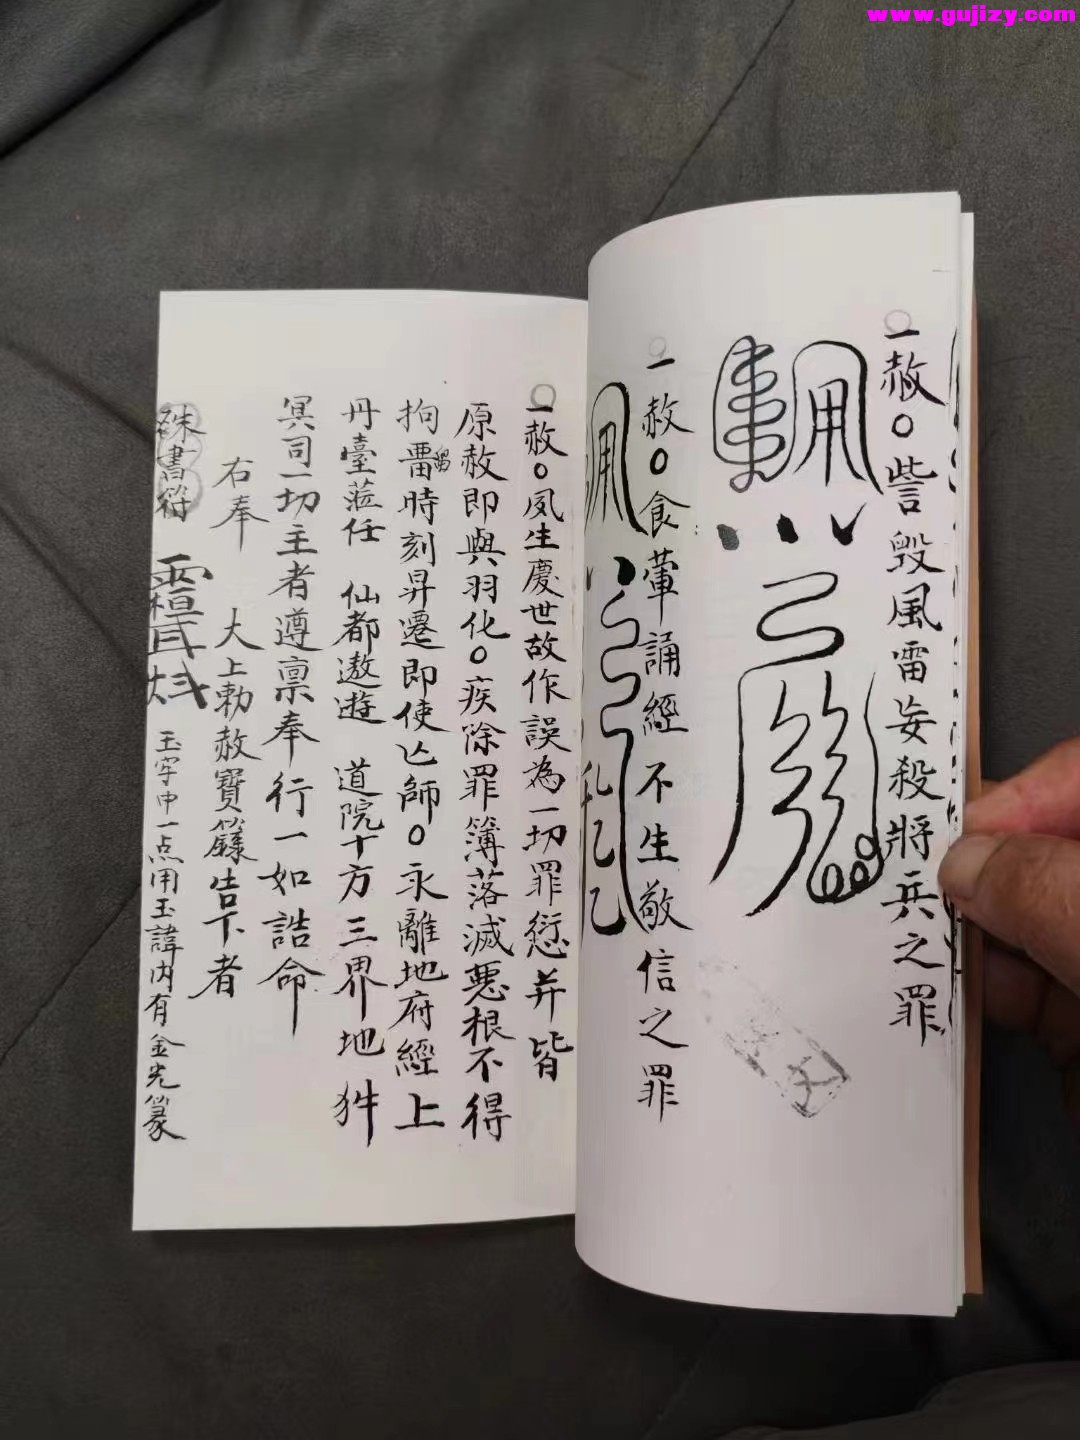 www.gujizy.com
一赦○訾毀風雷妄殺將兵之罪
一赦○食葷誦經不生敬信之罪
一赦○夙生慶世故作誤為一切罪愆并皆
原赦即與羽化○疾除罪簿落滅惡根不得
拘畱時刻昇遷即使亡師○永離地府經上
丹臺蒞任 仙都遨遊 道院十方三界地
冥司一切主者遵禀奉行一如誥命
右奉 大上勅赦寶籙告下者
硃書符 玉字中一点用玉諱內有金光篆